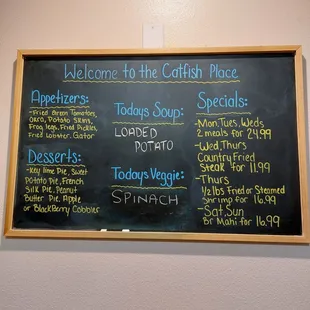 Welcome to the Catfish Place
Appetizers:
-Fried Green Tomatoes,
Okra, Potato Skins,
Frog legs, Fried Pickles,
Fried Lobster, Gator
Desserts:
-Key lime Pie, Sweet
Potato Pie, French
Silk Pie, Peanut
Butter Pie, Apple
or BlackBerry Cobbler
Todays Soup:
LOADED
POTATO
Todays Veggie:
SPINACH
Specials:
-Mon, Tues, Weds
2 meals for 24.99
-Wed, Thurs
Country Fried
Steak for 11.99
-Thurs
1/2 lbs Fried or Steamed
Shrimp for 16.99
-Sat, Sun
Br Mahi for 16.99